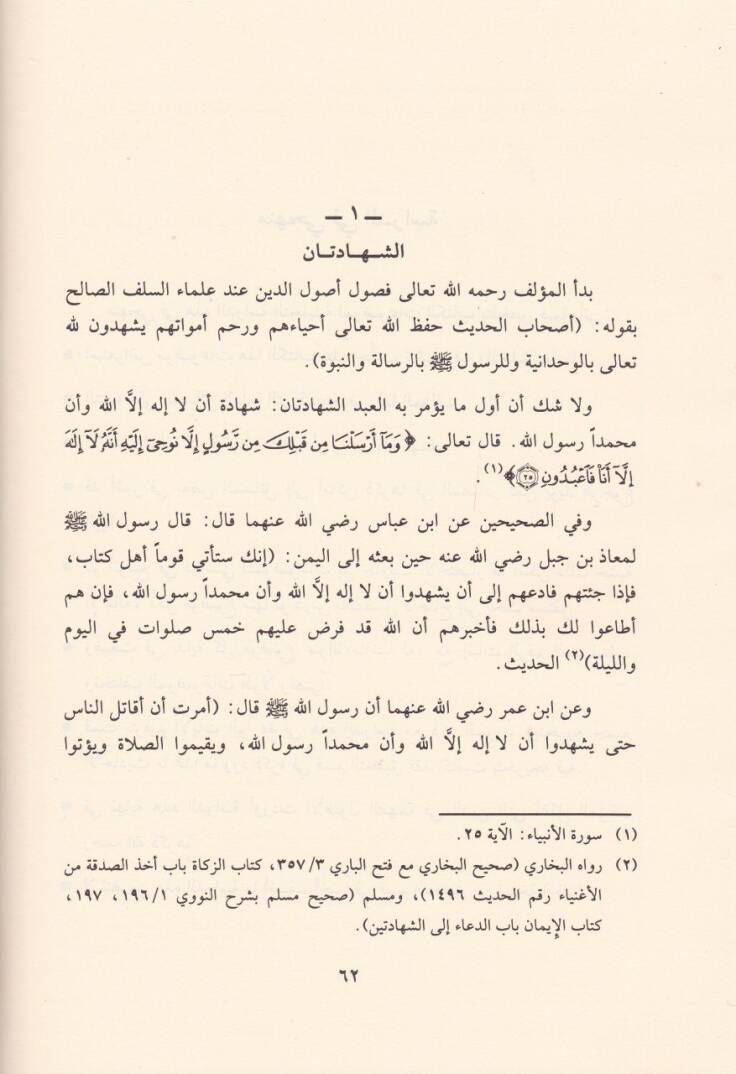 ـ ١ ـ
الشـهـادتـان
بدأ المؤلف رحمه الله تعالى فصول أصول الدين عند علماء السلف الصالح
بقوله: (أصحاب الحديث حفظ الله تعالى أحياءهم ورحم أمواتهم يشهدون لله
تعالى بالوحدانية وللرسول ﷺ بالرسالة والنبوة).
ولا شك أن أول ما يؤمر به العبد الشهادتان: شهادة أن لا إله إلَّا الله وأن
محمداً رسول الله. قال تعالى: ﴿وَمَآ أَرْسَلْنَا مِن قَبْلِكَ مِن رَّسُولٍ إِلَّا نُوحِىٓ إِلَيْهِ أَنَّهُۥ لَآ إِلَٰهَ
إِلَّآ أَنَا۠ فَٱعْبُدُونِ ۝٢٥﴾(١).
وفي الصحيحين عن ابن عباس رضي الله عنهما قال: قال رسول الله ﷺ
لمعاذ بن جبل رضي الله عنه حين بعثه إلى اليمن: (إنك ستأتي قوماً أهل كتاب،
فإذا جئتهم فادعهم إلى أن يشهدوا أن لا إله إلَّا الله وأن محمداً رسول الله، فإن هم
أطاعوا لك بذلك فأخبرهم أن الله قد فرض عليهم خمس صلوات في اليوم
والليلة)(٢) الحديث.
وعن ابن عمر رضي الله عنهما أن رسول الله ﷺ قال: (أمرت أن أقاتل الناس
حتى يشهدوا أن لا إله إلَّا الله وأن محمداً رسول الله، ويقيموا الصلاة ويؤتوا
(١) سورة الأنبياء: الآية ٢٥.
(٢) رواه البخاري (صحيح البخاري مع فتح الباري ٣٥٧/٣، كتاب الزكاة باب أخذ الصدقة من
الأغنياء رقم الحديث ١٤٩٦)، ومسلم (صحيح مسلم بشرح النووي ١٩٦/١، ١٩٧،
كتاب الإِيمان باب الدعاء إلى الشهادتين).
٦٢